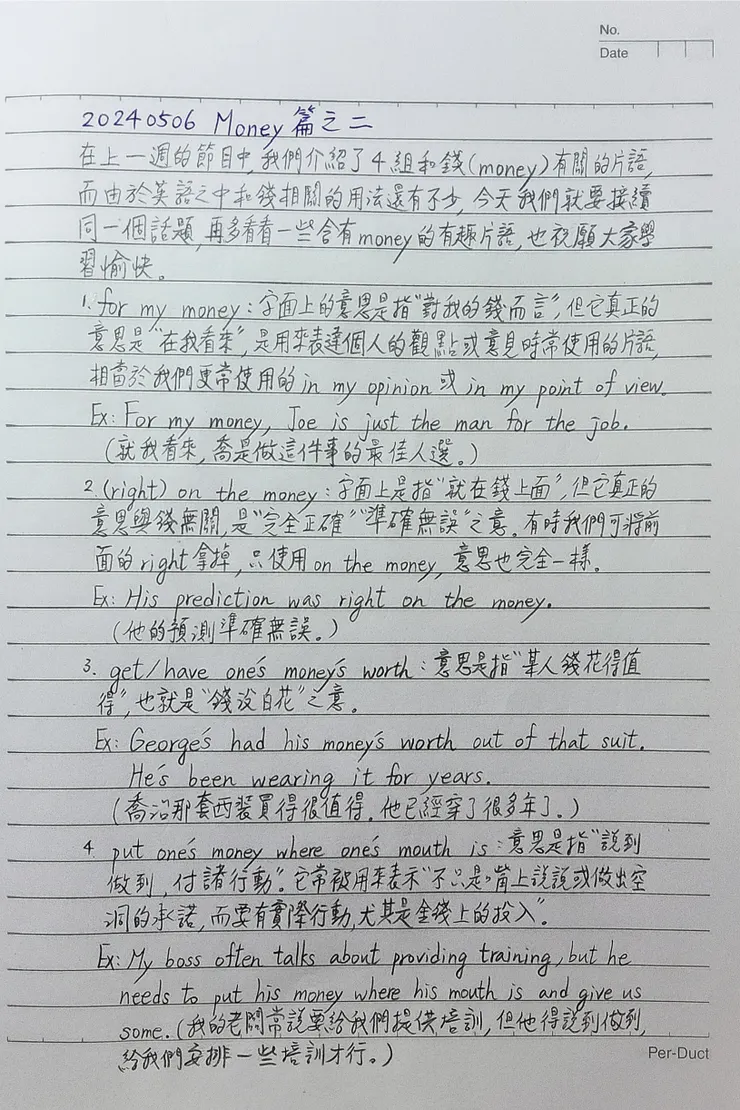 No.
Date
20240506 Money 篇之二
在上一週的節目中,我們介紹了4組和錢(money)有關的片語,
而由於英語之中和錢相關的用法還有不少,今天我們就要接續
同一個話題,再多看看一些含有money的有趣片語,也祝願大家學
習愉快。
1. for my money:字面上的意思是指"對我的錢而言",但它真正的
意思是"在我看來",是用來表達個人的觀點或意見時常使用的片語,
相當於我們更常使用的in my opinion或in my point of view.
Ex: For my money, Joe is just the man for the job.
(就我看來,喬是做這件事的最佳人選。)
2. (right) on the money:字面上是指"就在錢上面",但它真正的
意思與錢無關,是"完全正確""準確無誤"之意。有時我們可將前
面的right拿掉,只使用on the money,意思也完全一樣。
Ex: His prediction was right on the money.
(他的預測準確無誤。)
3. get/have one's money's worth:意思是指"某人錢花得值
得",也就是"錢沒白花"之意。
Ex: George's had his money's worth out of that suit.
He's been wearing it for years.
(喬治那套西裝買得很值得,他已經穿了很多年了。)
4. put one's money where one's mouth is:意思是指"說到
做到,付諸行動"。它常被用來表示"不只是嘴上說說或做出空
洞的承諾,而要有實際行動,尤其是金錢上的投入"。
Ex: My boss often talks about providing training, but he
needs to put his money where his mouth is and give us
some. (我的老闆常說要給我們提供培訓,但他得說到做到,
給我們安排一些培訓才行。)
Per-Duct